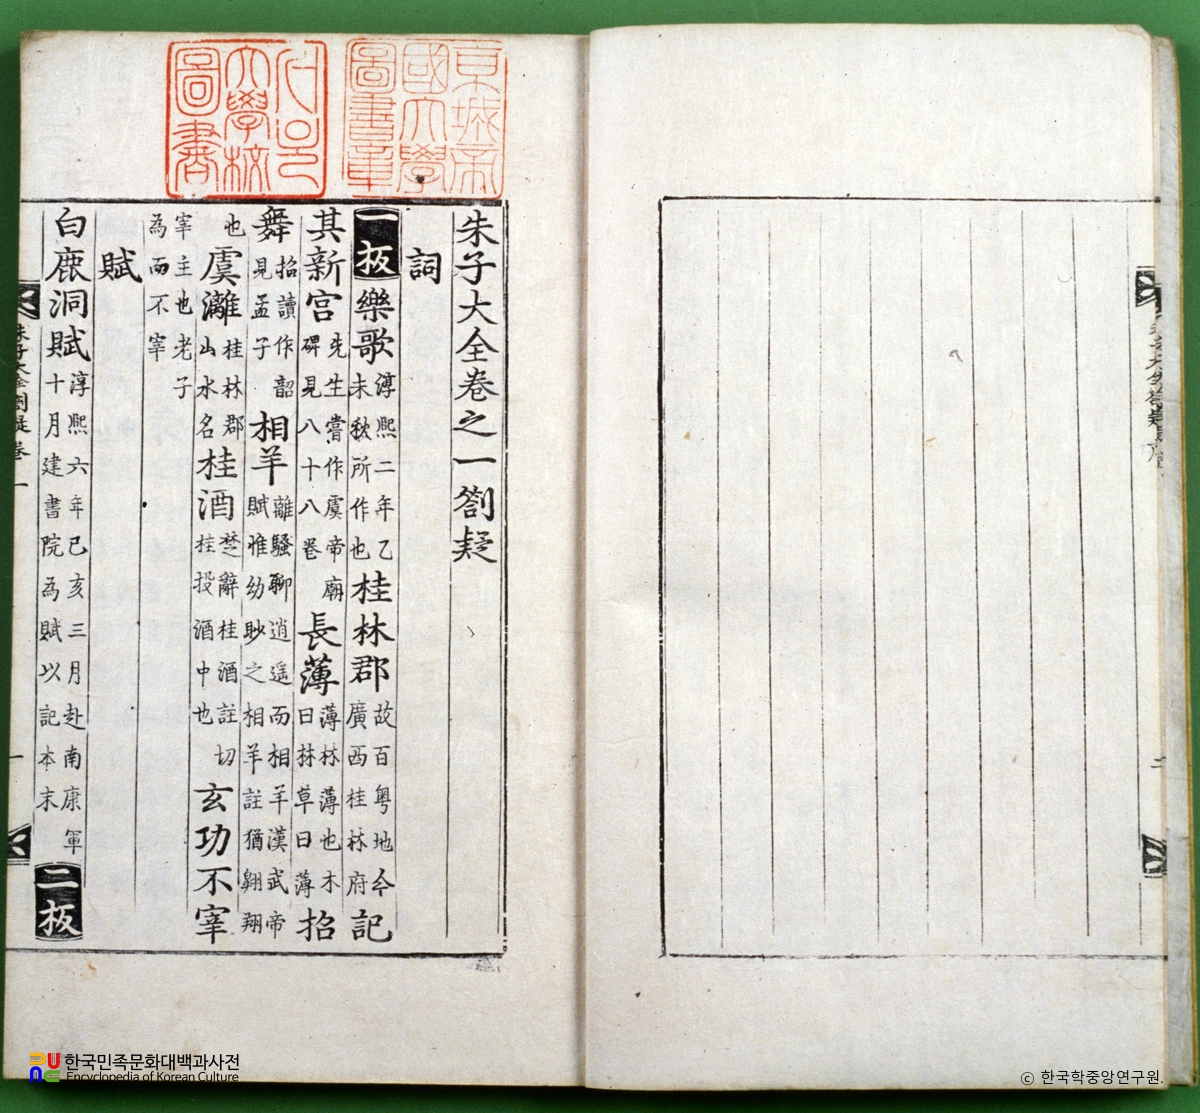 京城帝
國大學
圖書章
서울
大學校
圖書
朱子大全卷之一劄疑
詞
一板 樂歌 淳熙二年乙未秋所作也 桂林郡 故百粤地今廣西桂林府 記
其新宮 先生嘗作虞帝廟碑見八十八卷 長薄 薄林薄也木曰林草曰薄 招
舞 招讀作韶見孟子 相羊 離騷聊逍遥而相羊漢武帝賦惟幼眇之相羊註猶翱翔
也 虞灕 桂林郡山水名 桂酒 楚辭桂酒註切桂投酒中也 玄功不宰
宰主也老子為而不宰
賦
白鹿洞賦 淳熙六年己亥三月赴南康軍十月建書院為賦以記本末 二板
朱子大全劄疑卷一
一
二
한국민족문화대백과사전
Encyclopedia of Korean Culture
© 한국학중앙연구원